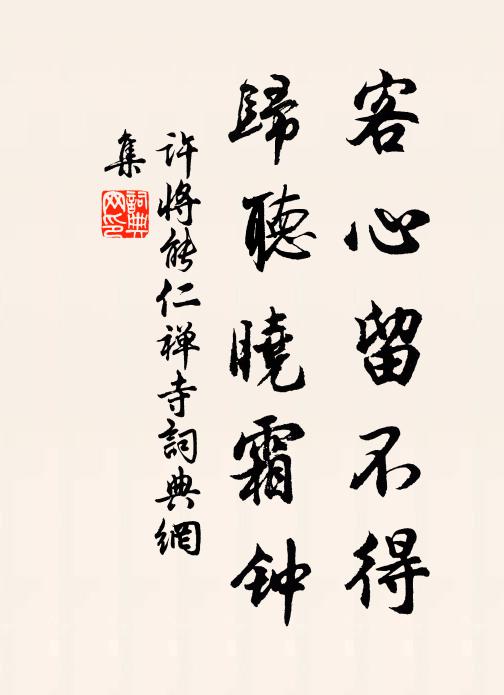 客心留不得
歸聽曉霜钟
许将能仁禅寺詞典網
集
詞典
网印